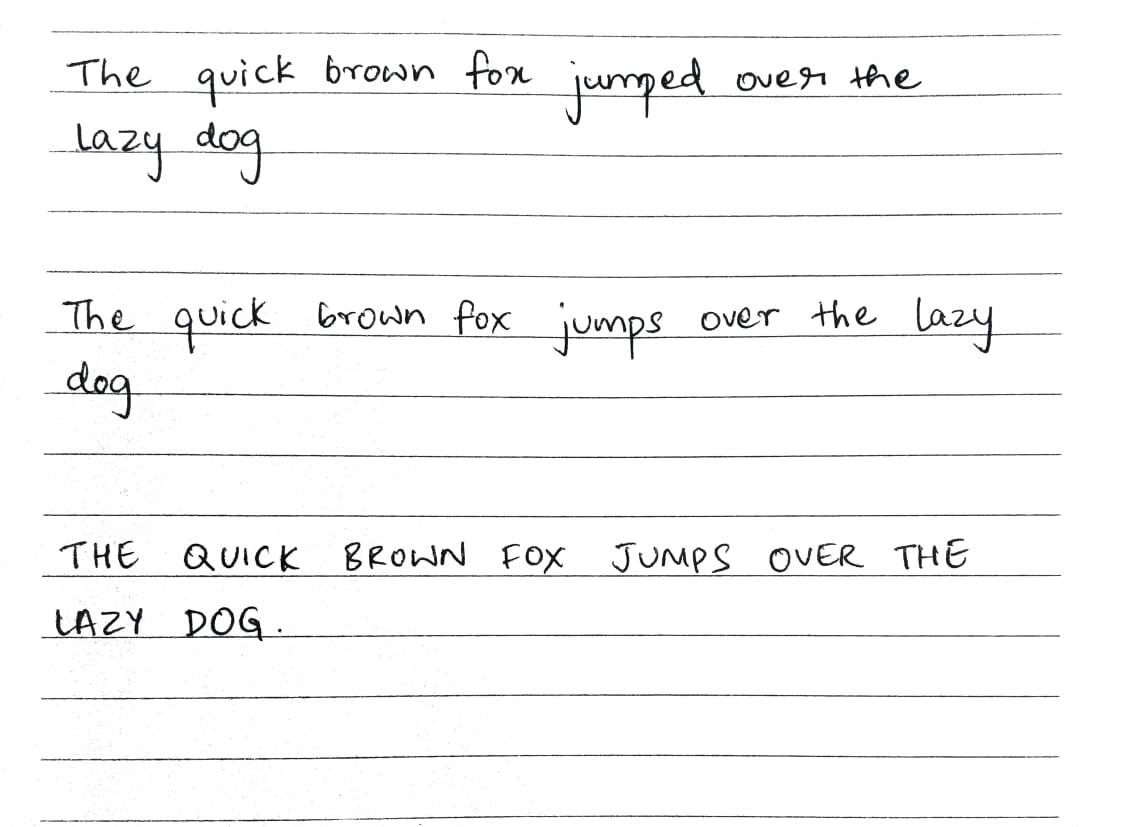 The quick brown fox jumped over the
Lazy dog
The quick brown fox jumps over the lazy
dog
THE QUICK BROWN FOX JUMPS OVER THE
LAZY DOG.